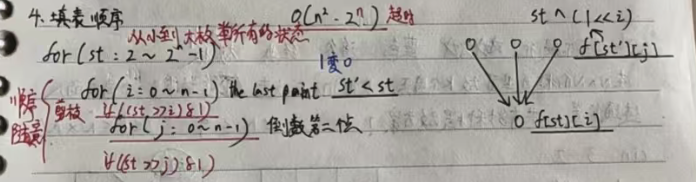 4. 填表顺序 O(n²·2ⁿ) 超时 st ^ (1<<i)
从小到大枚举所有的状态
for(st: 2 ~ 2ⁿ-1) 1变0 f[st'][j]
for(i: 0~n-1) the last point st'<st
顺序 剪枝 if((st>>i)&1)
for(j: 0~n-1) 倒数第二位 0 f[st][i]
if((st>>j)&1)